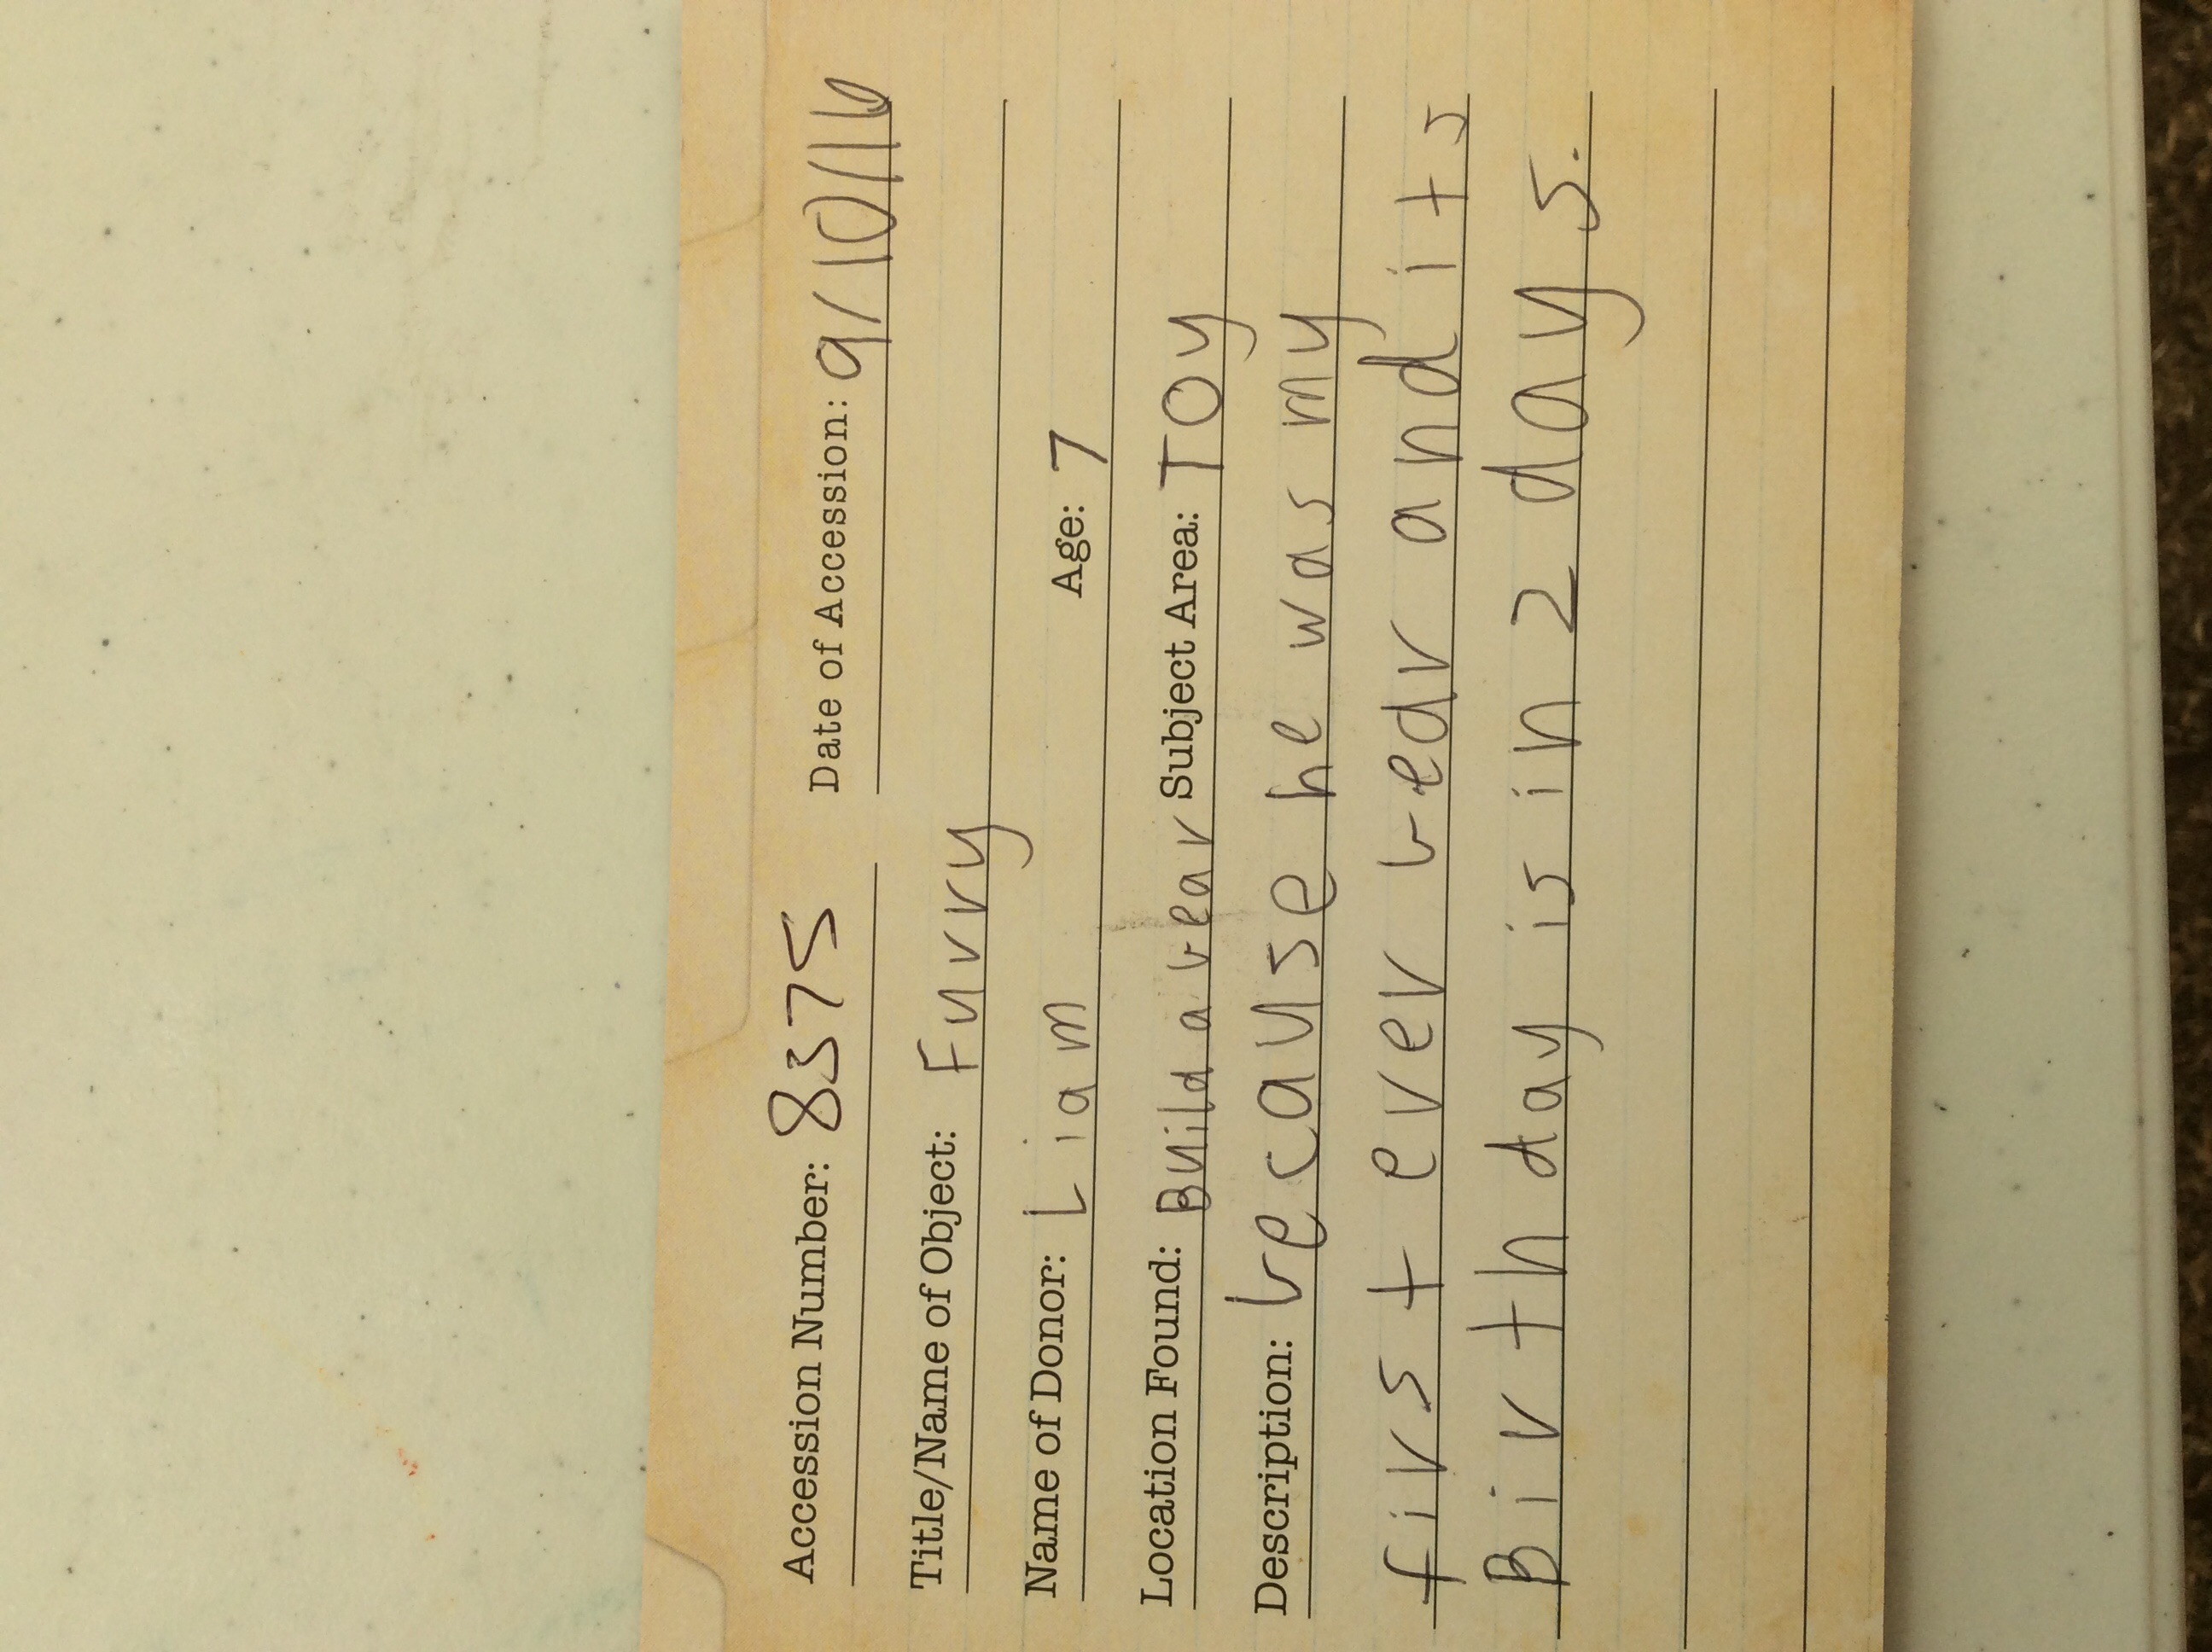 Accession Number: 8375 Date of Accession: 9/10/16
Title/Name of Object: Furry
Name of Donor: Liam Age: 7
Location Found: Build a bear Subject Area: TOy
Description: because he was my
first ever bear and its
Birthday is in 2 days.